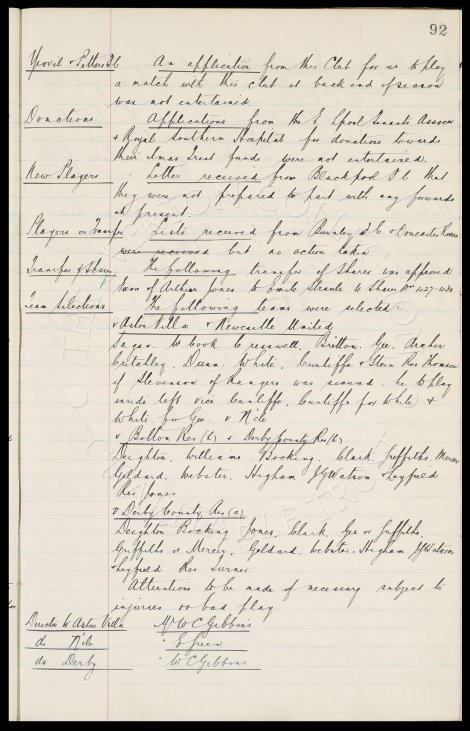 92
Yeovil & Petters U An application from this Club for us to play
a match with this club at back end of season
was not entertained
Donations Applications from the E. Lpool Assocn
& Royal Southern Hospital for donations towards
their Xmas treat funds were not entertained.
New Players Letter received from Blackpool F.C. that
they were not prepared to part with any forwards
at present.
Players on Transfer Lists received from Burnley F.C. & Doncaster Rovers
were received but no action taken
Transfer of Shares The following transfer of shares was approved
Exors of Arthur Jones to 4 Shares Nos 427-430
Team Selections The following teams were selected:
v Aston Villa v Newcastle United
Sagar. W Cook. Cresswell, Britton. Gee. Archer
Critchley, Dunn. White. Cunliffe & Stein Res Thomson
if Stevenson of Rangers was secured he to play
inside left vice Cunliffe, Cunliffe for White &
White for Gee. v N'cle
v Bolton Res (h) v Derby County Res (h)
Deighton, Williams, Bocking, Clark, Griffiths, Mercer
Geldard, Webster, Higham JGWatson & Leyfield
Res Jones
v Derby County Res (a)
Deighton Bocking Jones, Clark, Gee or Griffiths,
Griffiths or Mercer, Geldard, Webster, Higham JGWatson
& Leyfield Res Turner
Alterations to be made if necessary subject to
injuries or bad play
Director to Aston Villa Mr W C Gibbins
do N'cle " E Green
do Derby " W C Gibbins